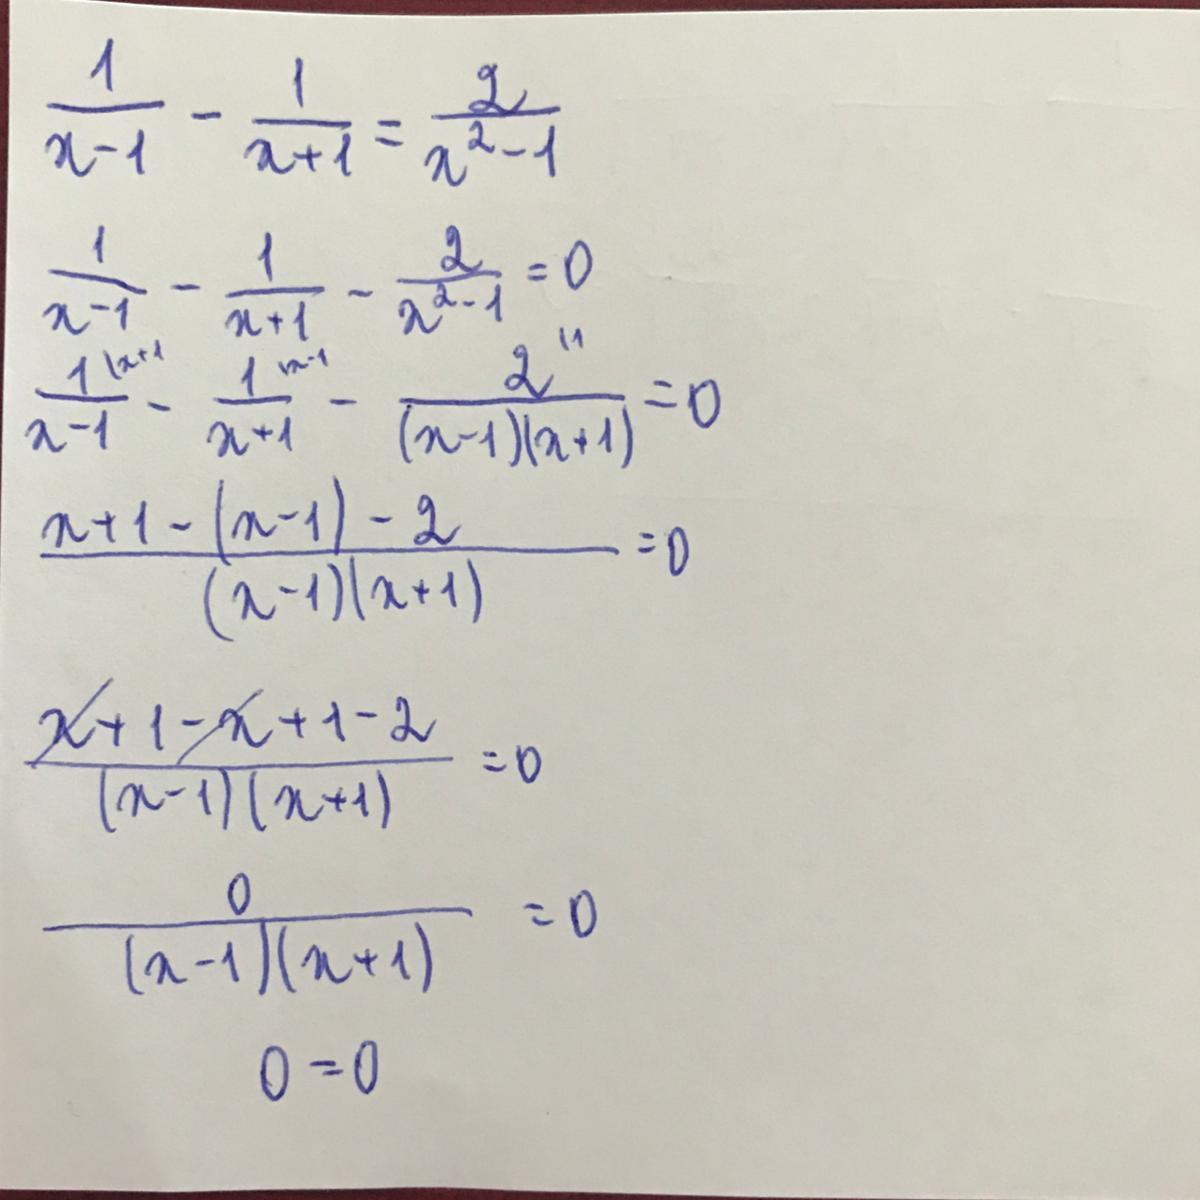 1/(x-1) - 1/(x+1) = 2/(x²-1)
1/(x-1) - 1/(x+1) - 2/(x²-1) = 0
1^(\x+1)/(x-1) - 1^(\x-1)/(x+1) - 2^(\1)/((x-1)(x+1)) = 0
(x+1-(x-1)-2)/((x-1)(x+1)) = 0
(x+1-x+1-2)/((x-1)(x+1)) = 0
0/((x-1)(x+1)) = 0
0=0